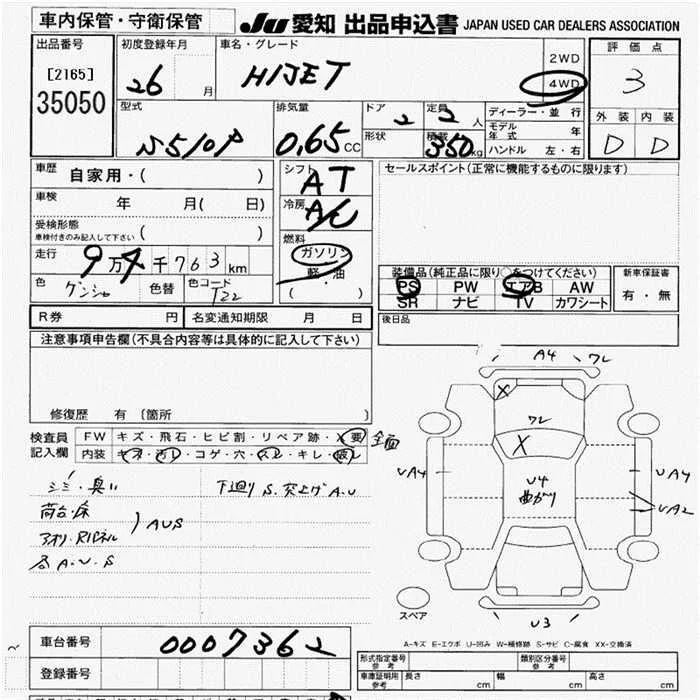 車内保管・守衛保管
JU 愛知 出品申込書 JAPAN USED CAR DEALERS ASSOCIATION
出品番号
[2165]
35050
初度登録年月
26 月
車名・グレード
HIJET
2WD
4WD
評価点
3
外装 内装
D D
型式
S510P
排気量
0.65 CC
ドア
2
形状
定員
2 人
積載
350 kg
ディーラー・並行
モデル年式 年
ハンドル 左・右
車歴
自家用・( )
車検
年 月( 日)
受検形態
車検付きのみ記入して下さい ( )
走行
9万4千763km
色
色替
色コード
T22
シフト
AT
冷房
A/C
燃料
ガソリン
軽・油
( )
セールスポイント(正常に機能するものに限ります)
装備品(純正品に限り○をつけてください)
PS PW エアB AW
SR ナビ TV カワシート
新車保証書
有・無
R券 円
名変通知期限 月 日
後日品
注意事項申告欄(不具合内容等は具体的に記入して下さい)
修復歴 有 [箇所 ]
検査員
記入欄
FW キズ・飛石・ヒビ割・リペア跡・X要
内装 キズ・汚レ・コゲ・穴・スレ・キレ・破レ
全面
シミ・臭い
下廻りS.突上ゲA.U
荷台・床
アオリ・Rパネル
AUS
各A.U.S
A4 ワレ
X
ワレ
X
U4
曲がり
UA4
UA4
UA2
U3
スペア
A-キズ E-エクボ U-凹み W-補修跡 S-サビ C-腐食 XX-交換済
車台番号
0007362
登録番号
形式指定番号
参考
類別区分番号
参考
車庫証明用
参考
長さ cm 幅 cm 高さ cm